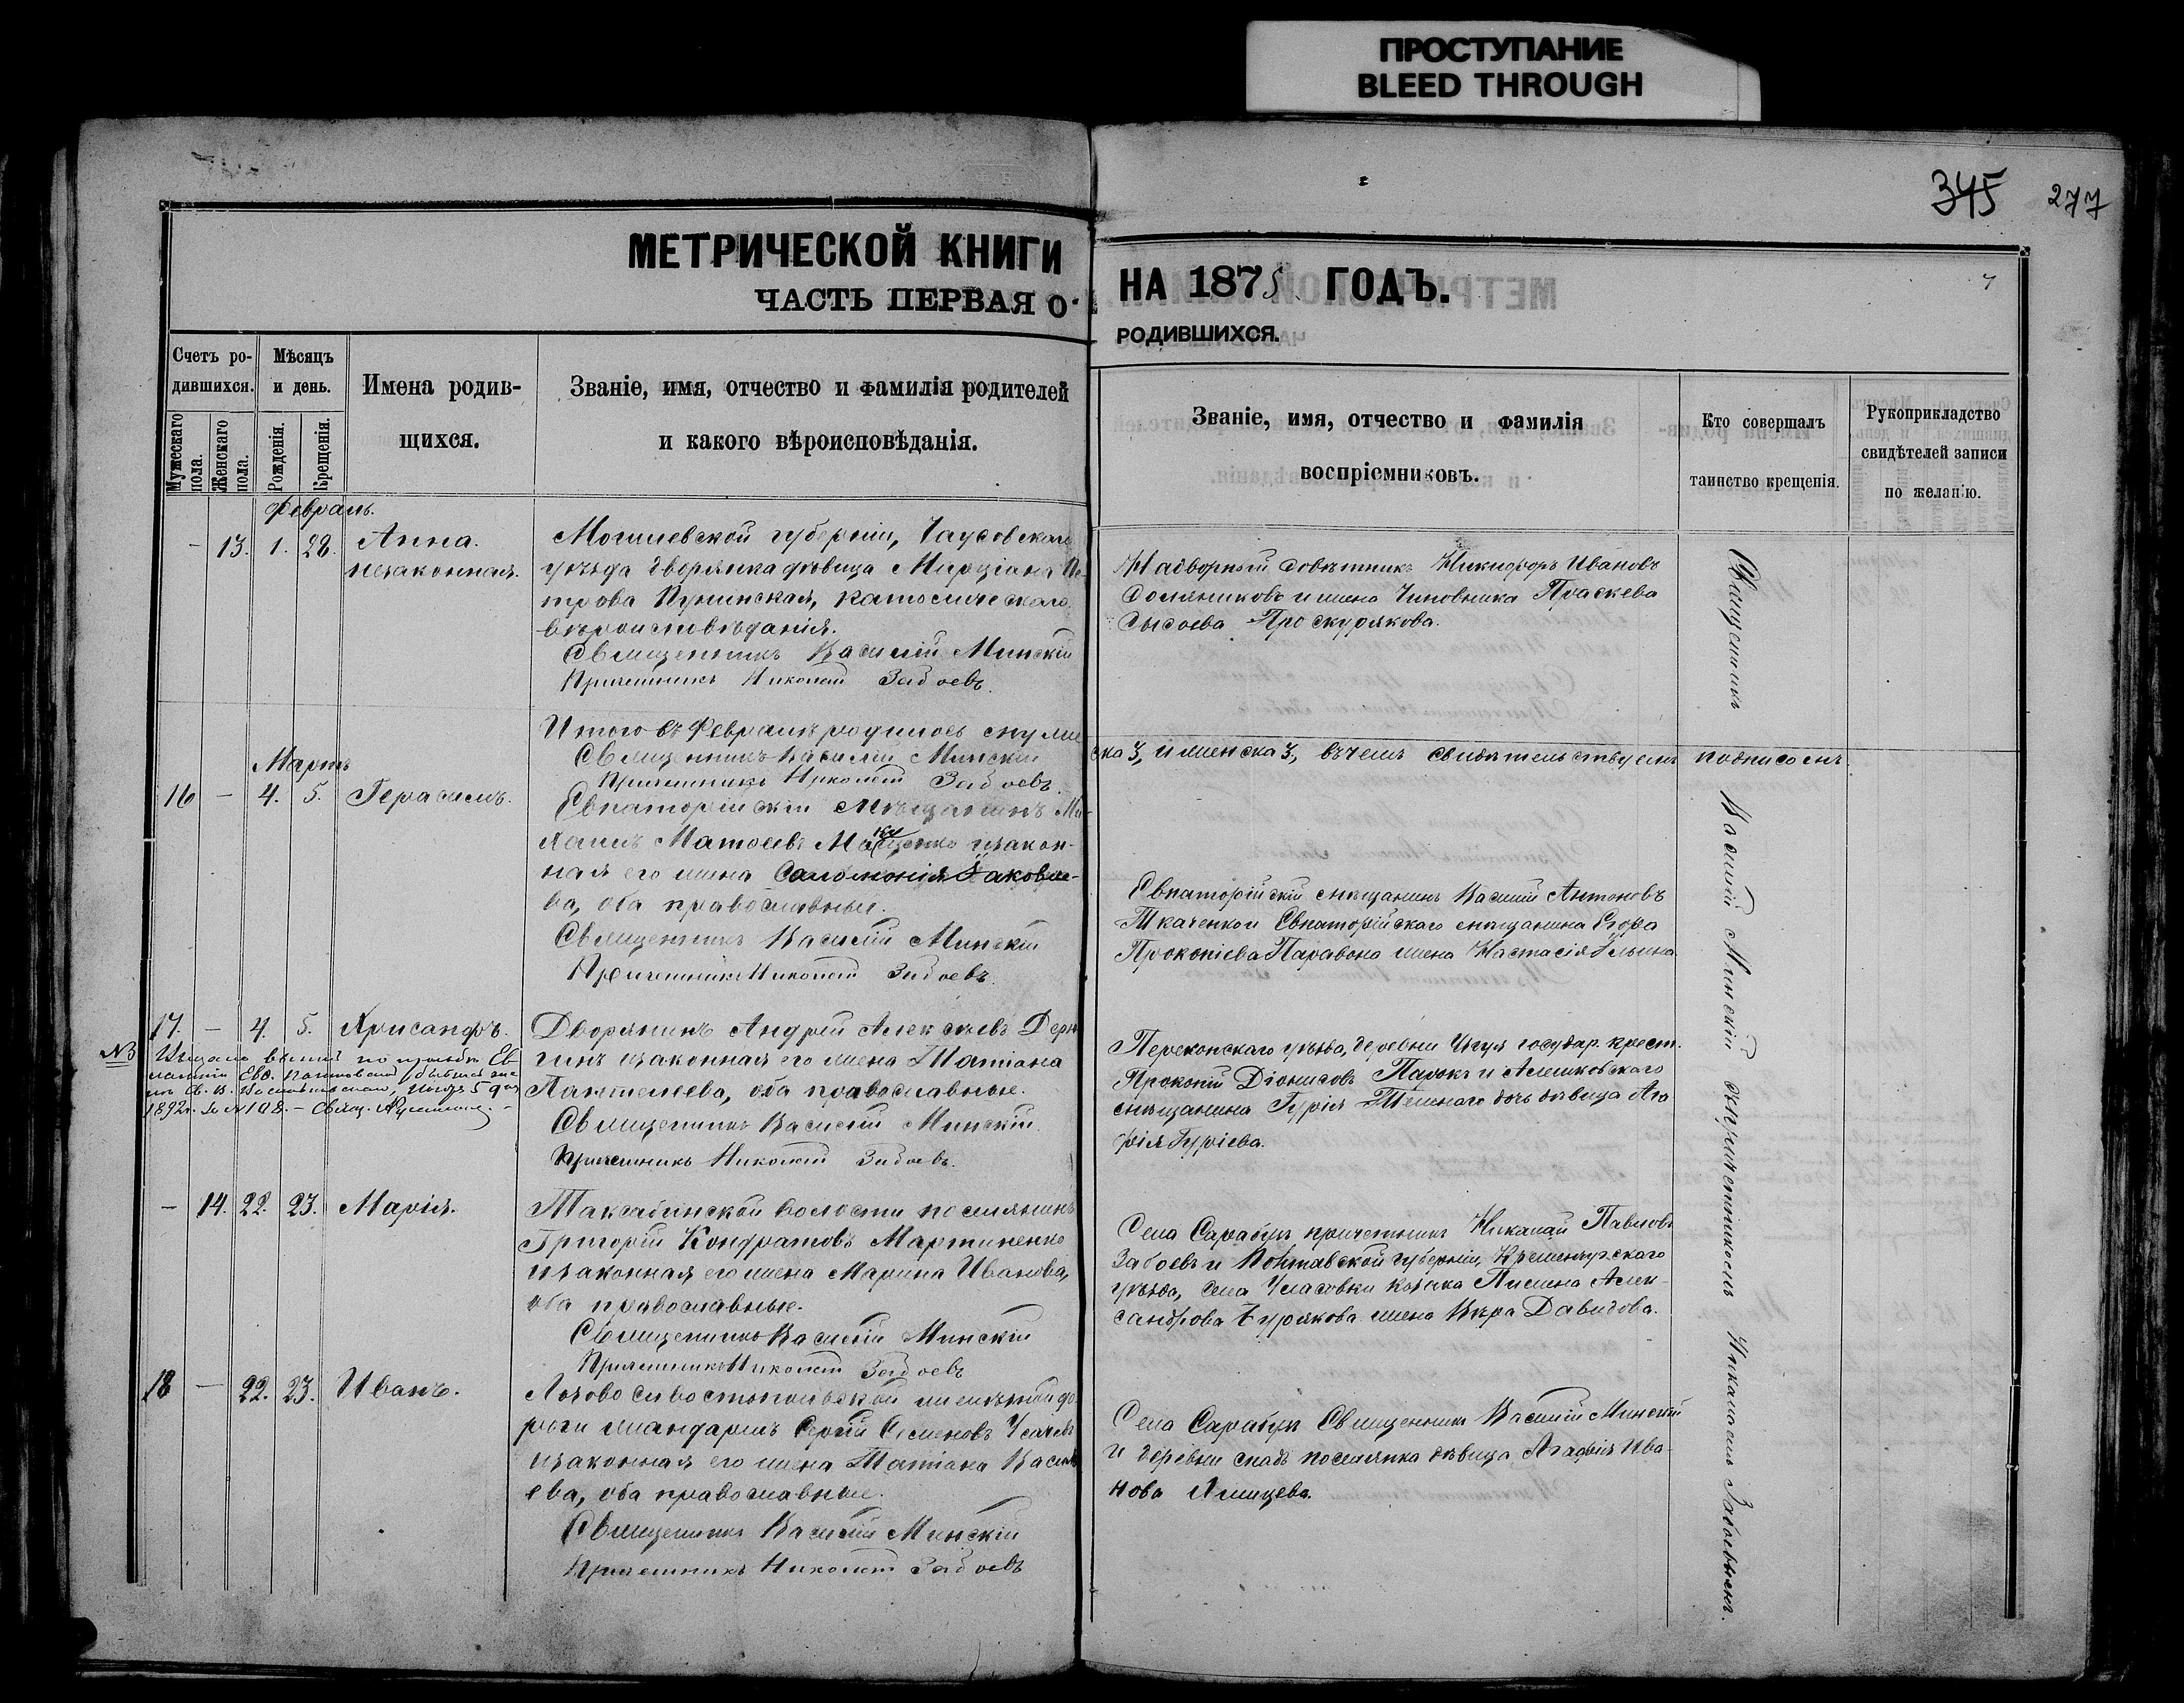 ПРОСТУПАНИЕ
BLEED THROUGH
345 277
МЕТРИЧЕСКОЙ КНИГИ
ЧАСТЬ ПЕРВАЯ О
НА 1875 ГОДЪ.
РОДИВШИХСЯ.
7
Счетъ ро-
дившихся.
Мужескаго пола.
Женскаго пола.
Мѣсяцъ
и день.
Рожденія.
Крещенія.
Имена родив-
щихся.
Званіе, имя, отчество и фамилія родителей
и какого вѣроисповѣданія.
Званіе, имя, отчество и фамилія
воспріемниковъ.
Кто совершалъ
таинство крещенія.
Рукоприкладство
свидѣтелей записи
по желанію.
Февраль.
- 13. 1. 28. Анна.
незаконная.
Могилевской губерніи, Чаусовскаго
уѣзда дворянка дѣвица Марціана Пе-
трова Пунинская, католическаго
вѣроисповѣданія.
Священникъ Василій Минскій
Причетникъ Николай Забоевъ.
Надворный Совѣтникъ Никифоръ Ивановъ
и жена Чиновника Праскева
Сысоева Проскурякова.
Итого въ Февралѣ родилось мужес
ска 3, и женска 3, въ чемъ свидѣтельствуемъ подписомъ
Священникъ Василій Минскій
Причетникъ Николай Забоевъ.
Мартъ
16 - 4. 5. Герасимъ.
Евпаторійскій мѣщанинъ Ми-
хаилъ Матѳеевъ и закон-
ная его жена Саломонія Яковле-
ва, оба православные.
Священникъ Василій Минскій
Причетникъ Николай Забоевъ.
Евпаторійскій мѣщанинъ Василій Антоновъ
Ткаченко и Евпаторійскаго мѣщанина Егора
Прокопіева жена Настасія Ильина.
17. - 4. 5. Хрисанфъ.
Дворянинъ Андрей Алексѣевъ
и законная его жена Татіана
Пантелеева, оба православные.
Священникъ Василій Минскій.
Причетникъ Николай Забоевъ.
1892г. за № 108. - Свящ.
Перекопскаго уѣзда, деревни государ. крест.
Прокопій Діонисовъ и Алешковскаго
мѣщанина Гурія дочь дѣвица Ага
фія Гуріева.
- 14. 22. 23. Марія.
волости поселянинъ
Григорій Кондратовъ Мартиненко
и законная его жена Марина Иванова,
оба православные.
Священникъ Василій Минскій
Причетникъ Николай Забоевъ
Села Сарабузъ причетникъ Николай Павловъ
Забоевъ и Полтавской губерніи, Кременчугскаго
уѣзда, села козака Пимена Алек-
сандрова жена Вѣра Давидова.
18 - 22. 23. Иванъ.
Лозово Севастопольской желѣзной до-
роги жандармъ Сергій Семеновъ Усачевъ
и законная его жена Татіана Василь
ева, оба православные.
Священникъ Василій Минскій
Причетникъ Николай Забоевъ
Села Сарабузъ Священникъ Василій Минскій
и деревни поселянка дѣвица Агафія Ива-
нова
Священникъ Василій Минскій съ причетникомъ Николаемъ Забоевымъ.